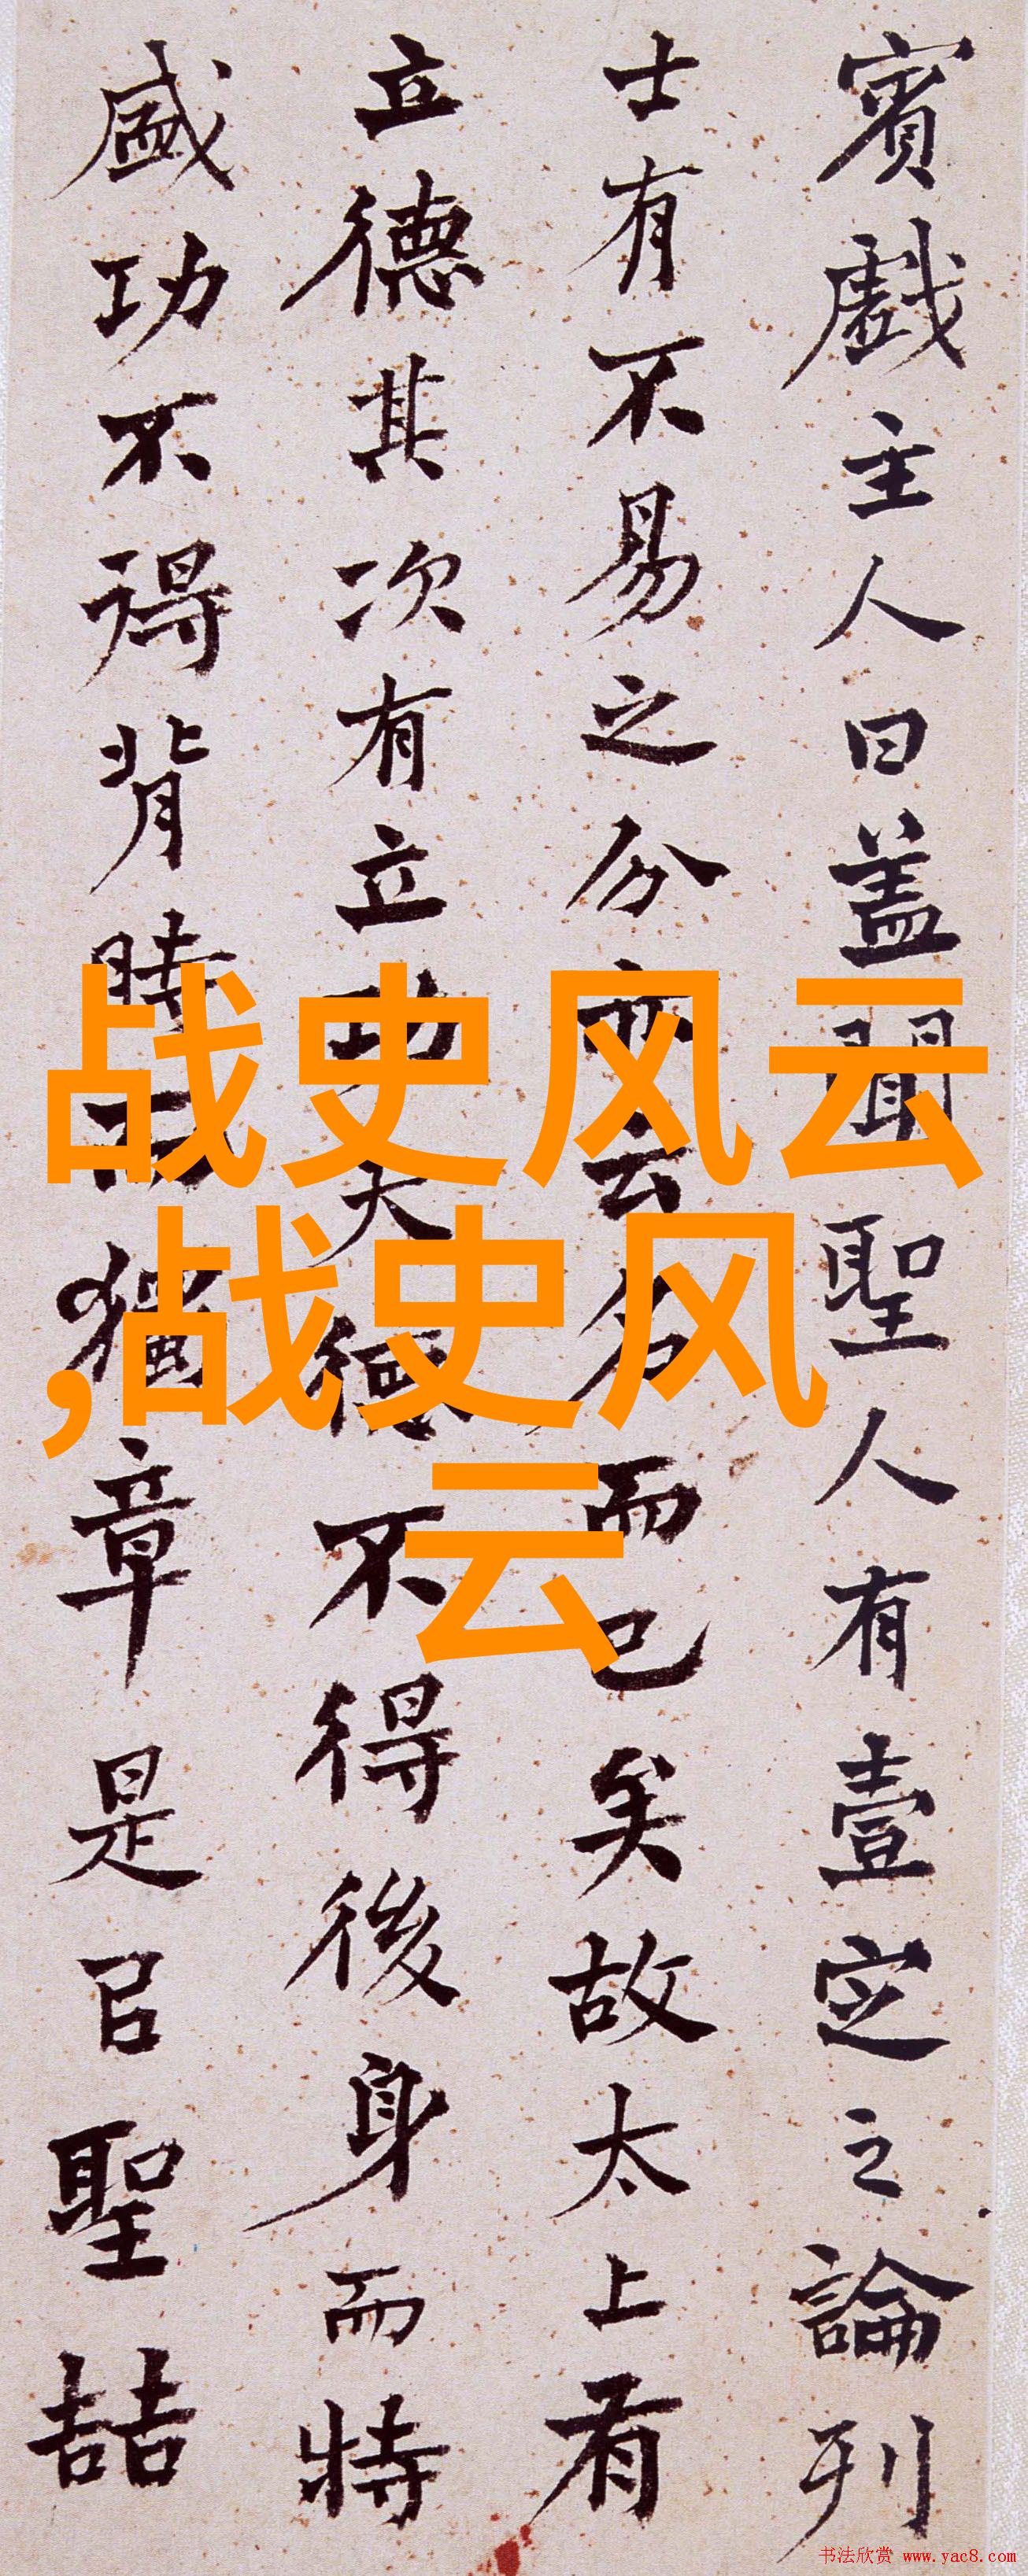 賓戲主人曰蓋聞聖人有壹定之論列
士有不易之分亦云名而已矣故太上有
立德其次有立功夫德不得後身而特
盛功不得背時而獨章是以聖喆
战史风云
,战史风
云
书法欣赏 www.yac8.com